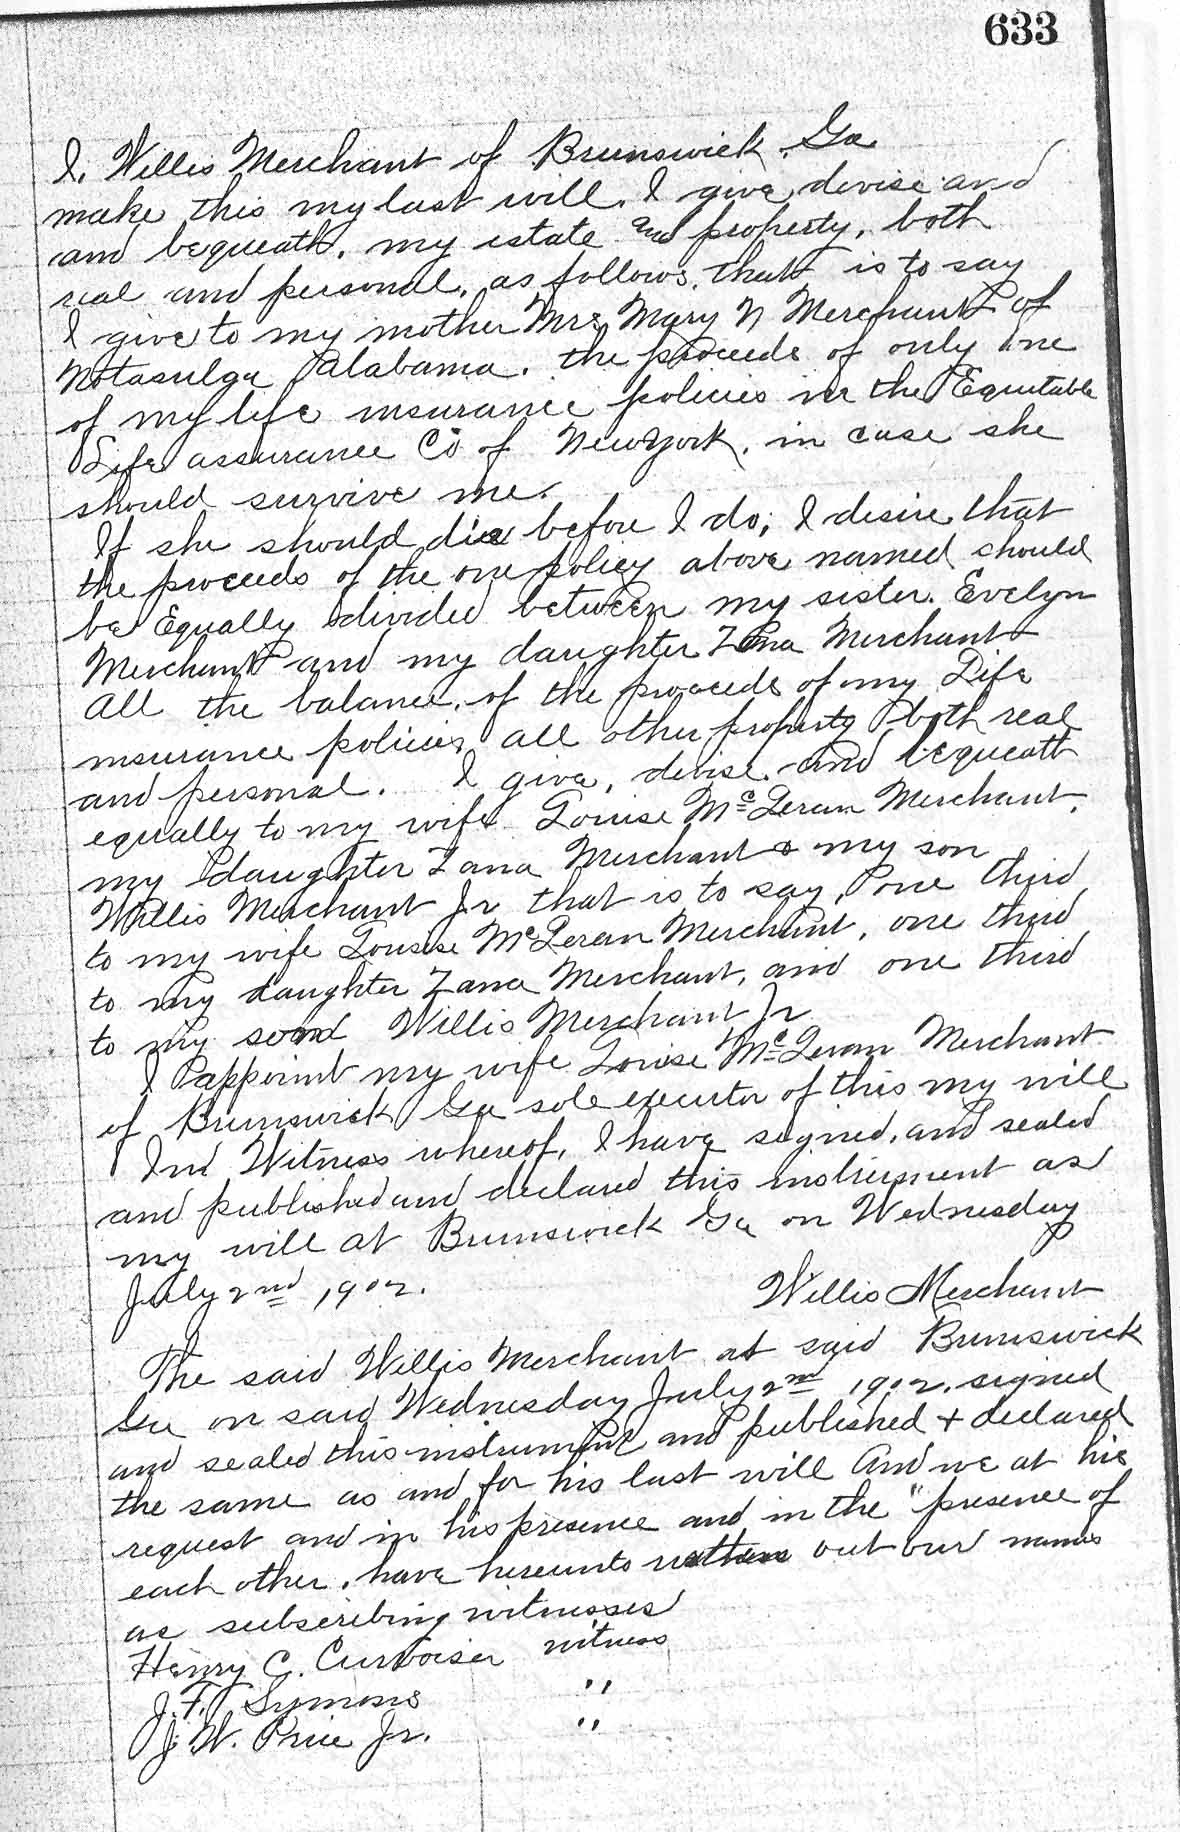 633
I, Willis Merchant of Brunswick, Ga
make this my last will. I give, devise and
and bequeath, my estate and property, both
real and personal, as follows, that is to say
I give to my mother Mrs Mary N Merchant of
Notasulga Alabama. the proceeds of only one
of my life insurance policies in the Equitable
Life assurance Co of New York, in case she
should survive me.
If she should die before I do, I desire that
the proceeds of the one policy above named should
be Equally divided between my sister. Evelyn
Merchant and my daughter Zana Merchant
All the balance, of the proceeds of my Life
insurance policies, all other property both real
and personal. I give, devise, and bequeath
equally to my wife Louise McLeran Merchant,
my daughter Zana Merchant & my son
Willis Merchant Jr that is to say, one third,
to my wife Louise McLeran Merchant, one third
to my daughter Zana Merchant, and one third
to my son Willis Merchant Jr
I appoint my wife Louise McLeran Merchant
of Brunswick Ga sole executor of this my will
In Witness whereof, I have signed, and sealed
and published and declared this instrument as
my will at Brunswick Ga on Wednesday
July 2nd, 1902.
Willis Merchant
The said Willis Merchant at said Brunswick
Ga on said Wednesday July 2nd 1902, signed
and sealed this instrument and published + declared
the same as and for his last will And we at his
request and in his presence and in the "presence of
each other, have hereunto written out our names
as subscribing witnesses
Henry C. Curvoisen witness
J. F. Symons "
J. W. Price Jr. "